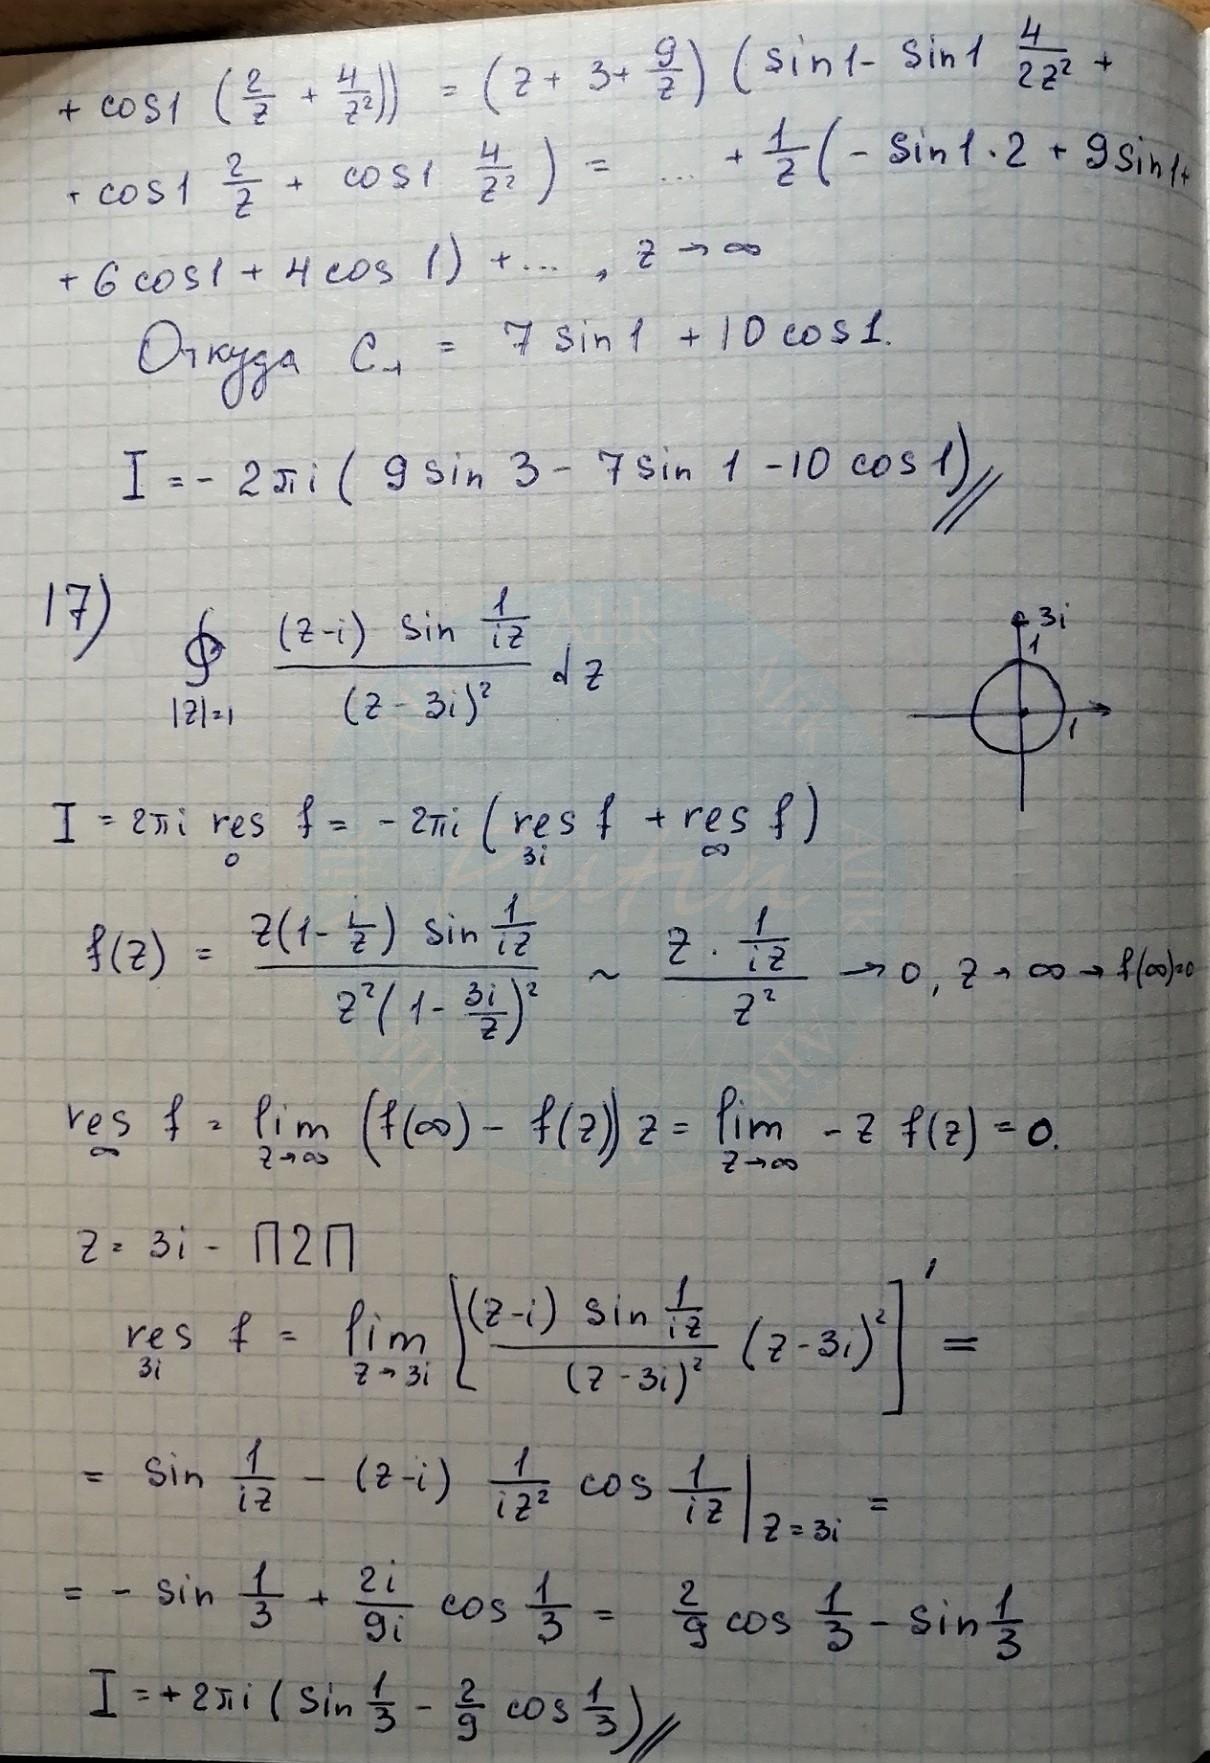 + cos1 (2/z + 4/z²)) = (z + 3 + 9/z) (sin1 - sin1 4/2z² +
+ cos1 2/z + cos1 4/z²) = ... + 1/z (- sin1·2 + 9sin1+
+ 6cos1 + 4cos 1) + ... , z → ∞
Откуда C₋₁ = 7 sin1 + 10 cos1.
I = - 2πi ( 9 sin 3 - 7 sin 1 - 10 cos1) //
17) ∮_{|z|=1} (z-i) sin 1/iz / (z - 3i)² dz
3i
1
1
I = 2πi res_0 f = - 2πi ( res_{3i} f + res_∞ f )
f(z) = z(1 - i/z) sin 1/iz / z²(1 - 3i/z)² ~ z · 1/iz / z² → 0, z → ∞ → f(∞)=0
res_∞ f = lim_{z→∞} (f(∞) - f(z)) z = lim_{z→∞} - z f(z) = 0.
z = 3i - П2П
res_{3i} f = lim_{z→3i} [ (z-i) sin 1/iz / (z - 3i)² (z - 3i)² ]' =
= sin 1/iz - (z-i) 1/iz² cos 1/iz |_{z=3i} =
= - sin 1/3 + 2i/9i cos 1/3 = 2/9 cos 1/3 - sin 1/3
I = + 2πi ( sin 1/3 - 2/9 cos 1/3 ) //